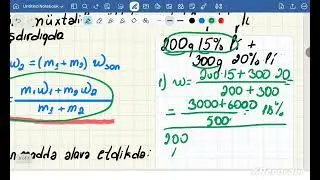 Untitled Notebook
nüxtəli
dırdıqda
w₂ = (m₁+m₂) wson
= m₁w₁ + m₂w₂ / m₁ + m₂
maddə əlavə etdikdə:
200g 15% li +
300g 20% li
1) w = 200·15 + 300·20 / 200 + 300
= 3000 + 6000 / 500 = 18%
200